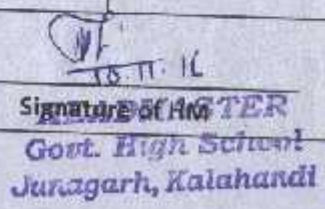 Signature of HM
HEADMASTER
Govt. High School
Junagarh, Kalahandi